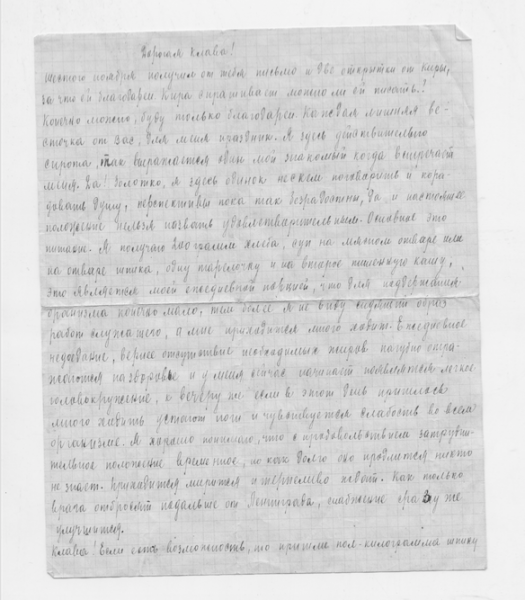 Дорогая Клава!
шестого ноября получил от тебя письмо и две открытки от Киры,
за что ей благодарен. Кира спрашивает можно ли ей писать?
Конечно можно, буду только благодарен. Каждая лишняя ве-
сточка от вас, для меня праздник. Я здесь действительно
сирота, так выражается один мой знакомый когда встречает
меня. Да! Золотко, я здесь одинок не с кем поговорить и пора-
довать душу, перспективы пока так безрадостны, да и настоящее
положение нельзя назвать удовлетворительным. Основное это
питание. Я получаю 200 грамм хлеба, суп на мясном отваре или
на отваре шпика, одну тарелочку и на второе пшенную кашу,
это является моей ежедневной порцией, что для поддержания
организма конечно мало, тем более я не веду сидячий образ
работ служащего, а мне приходится много ходить. Ежедневное
недоедание, вернее отсутствие необходимых жиров пагубно отра-
жаются на здоровье и у меня сейчас начинает появляться легкое
головокружение, к вечеру же если в этот день пришлось
много ходить устают ноги и чувствуется слабость во всем
организме. Я хорошо понимаю, что с продовольствием затрудни-
тельное положение временное, но как долго оно продлится никто
не знает. Приходится мирится и терпеливо ждать. Как только
врага отбросят подальше от Ленинграда, снабжение сразу же
улучшится.
Клава! Если есть возможность, то пришли пол-килограмма шпику